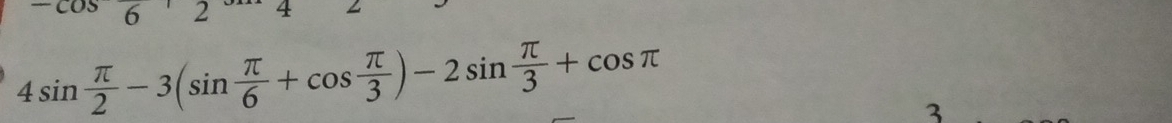 -cos 6 + 2 4 2
4 sin π/2 − 3(sin π/6 + cos π/3) − 2 sin π/3 + cos π
3